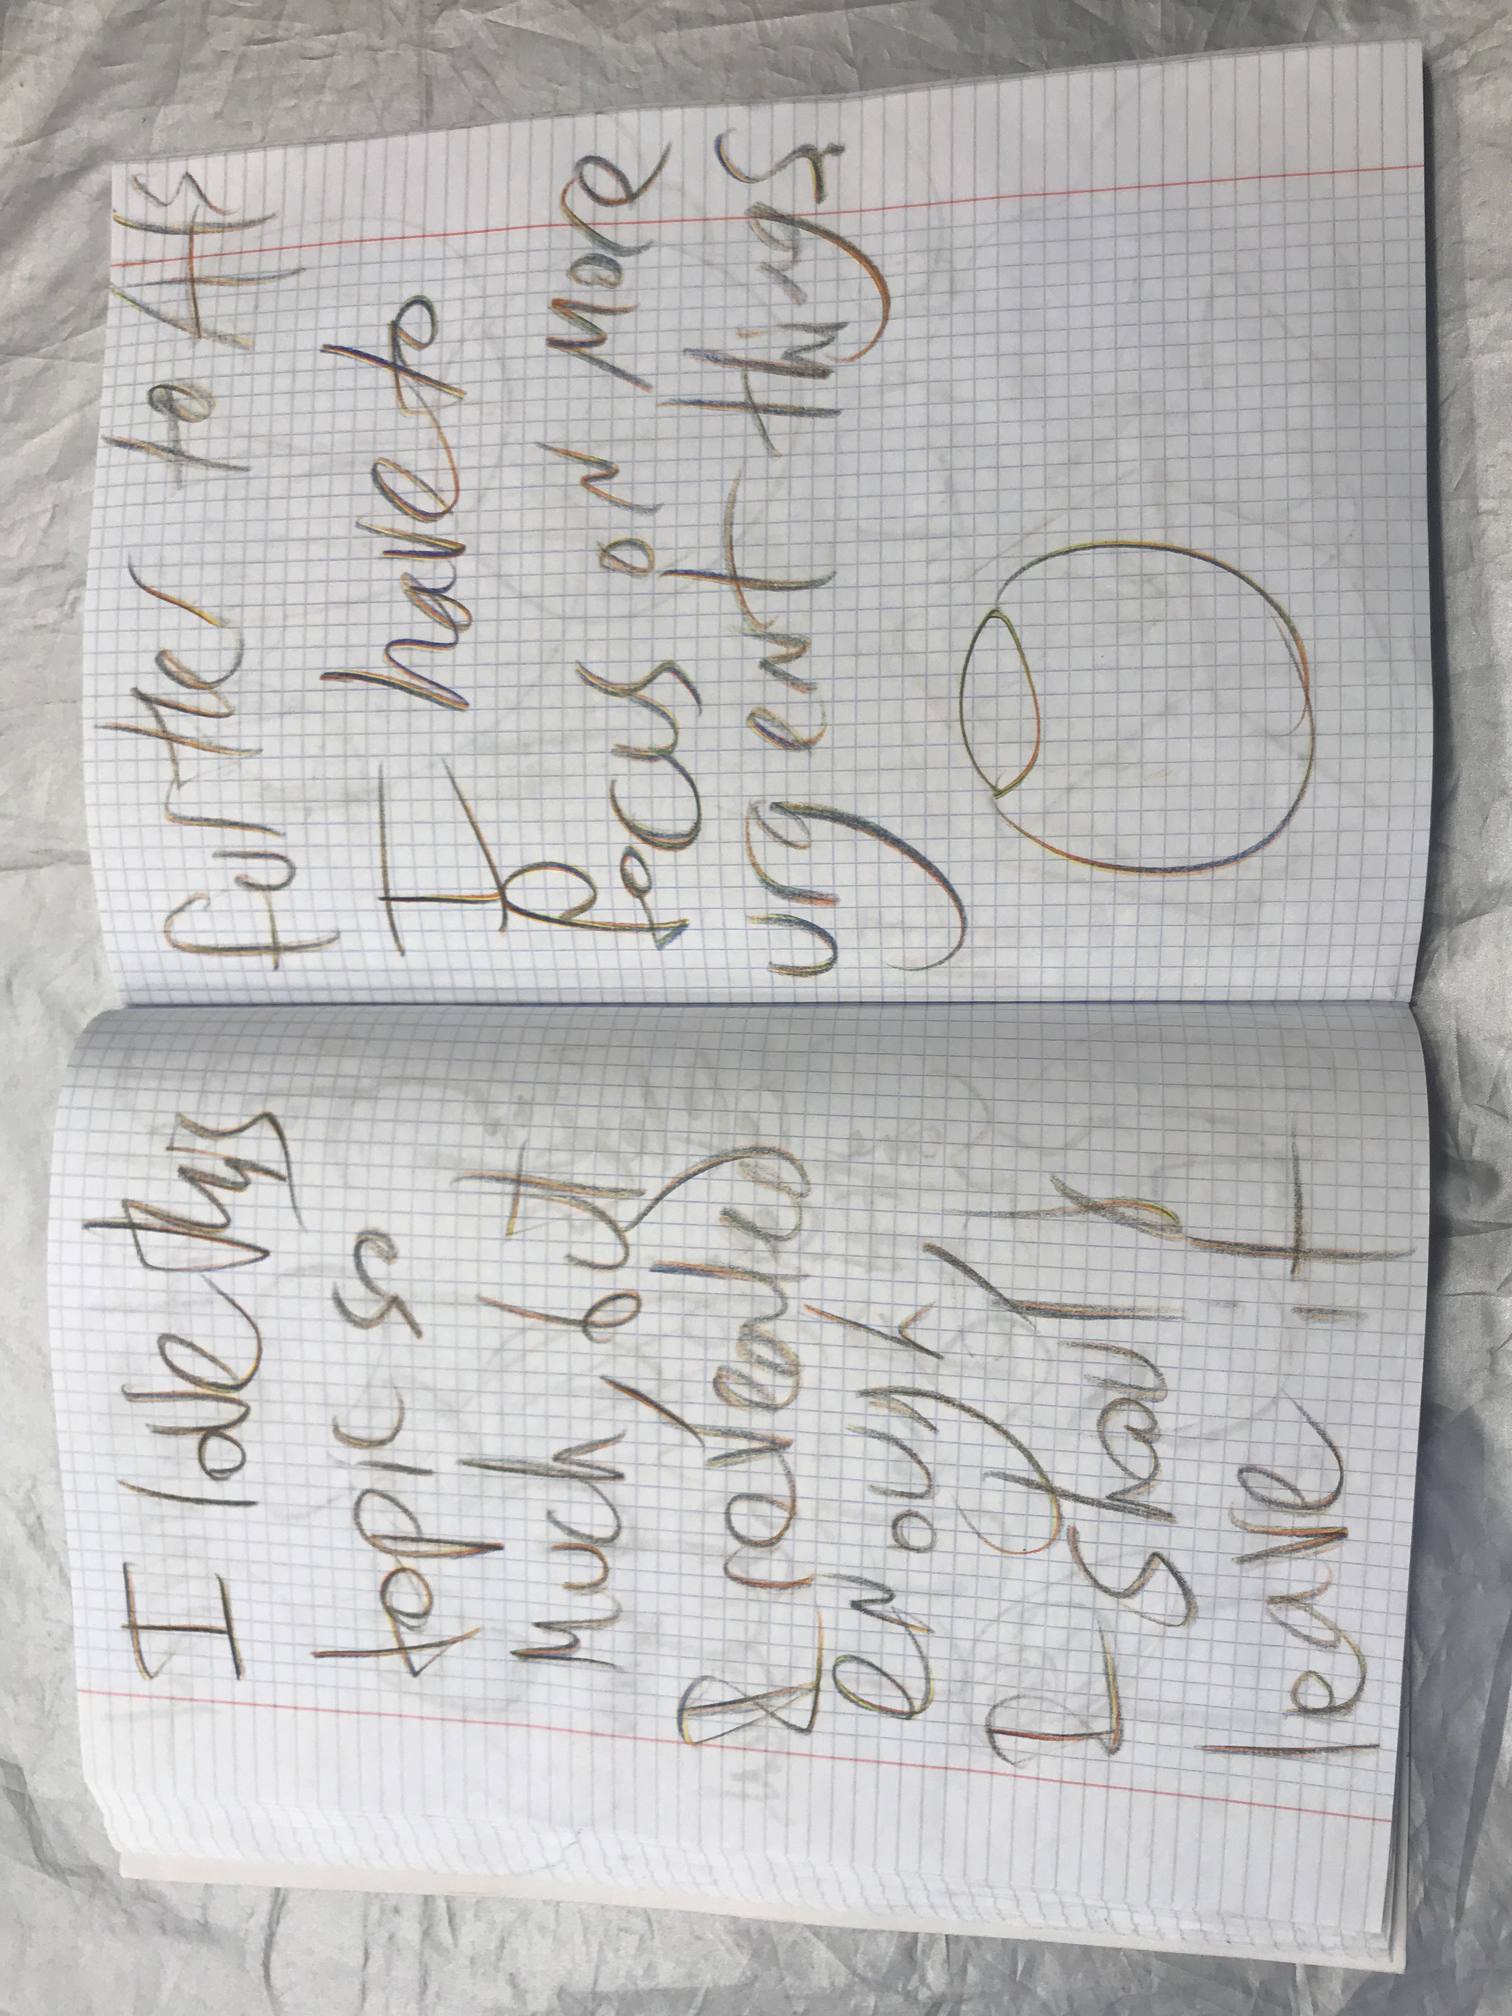 I love this
topic so
much but
I revealed
enough
I shall
leave it
further to
I have to
focus on more
urgent things.